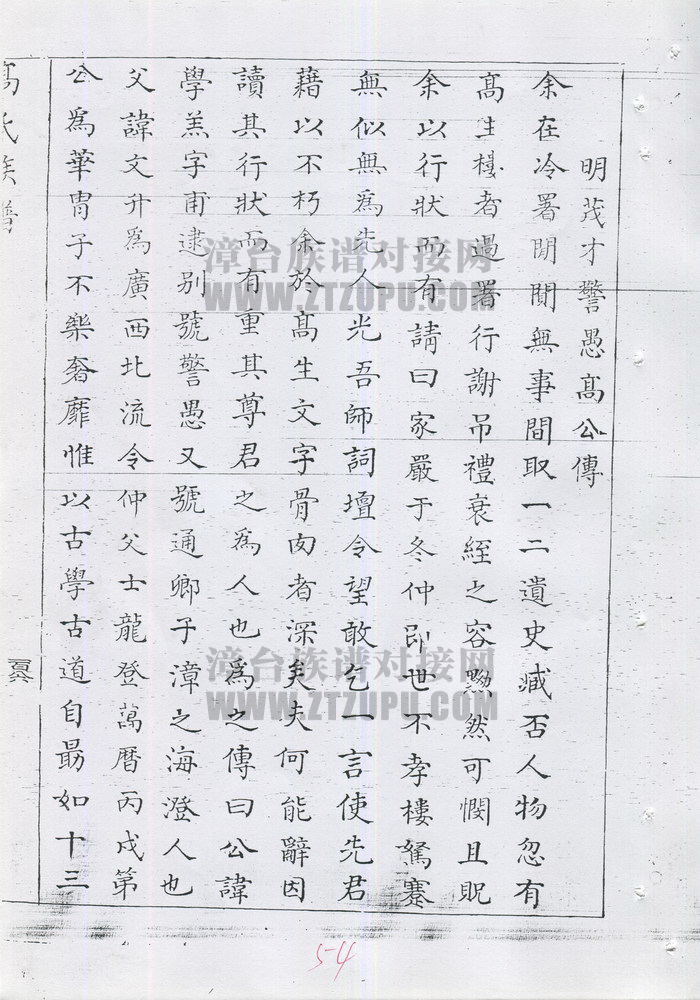 明茂才警愚髙公傳
余在冷署閒閴無事間取一二遺史臧否人物忽有
髙生樓者過署行謝吊禮衰絰之容黝然可憫且貺
余以行狀而有請曰家嚴于冬仲即世不孝樓駑蹇
無似無為先人光吾師詞壇令望敢乞一言使先君
藉以不朽余於髙生文字骨肉者深矣夫何能辭因
讀其行狀而有重其尊君之為人也為之傳曰公諱
學羔字甫逮别號警愚又號通鄉子漳之海澄人也
父諱文升為廣西北流令仲父士龍登萬曆丙戌第
公為華胄子不樂奢靡惟以古學古道自勗如十三
髙氏族譜
漳台族谱对接网
WWW.ZTZUPU.COM
漳台族谱对接网
WWW.ZTZUPU.COM
54